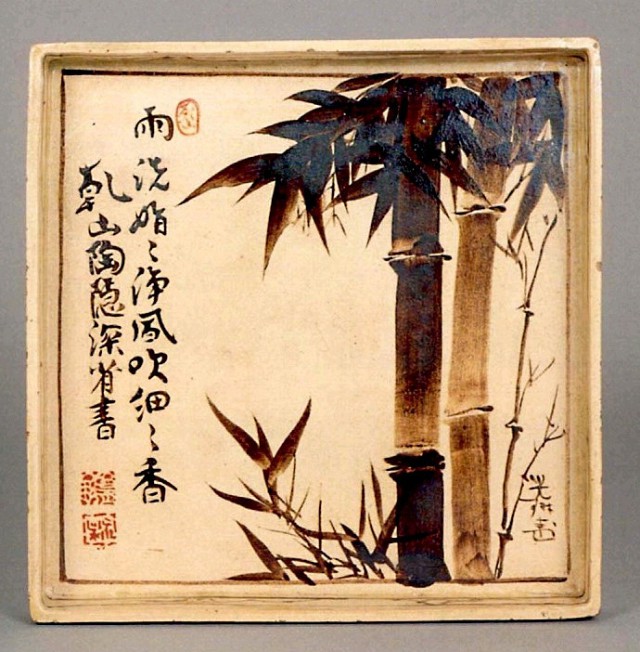 雨洗娟〻浄風吹細〻香
乾山陶隠深省書
光琳画